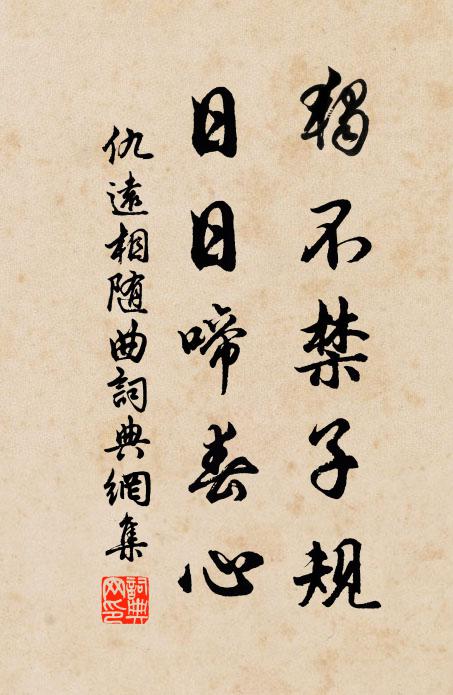 獨不禁子規
日日啼春心
仇遠相随曲詞典網集
詞典網印